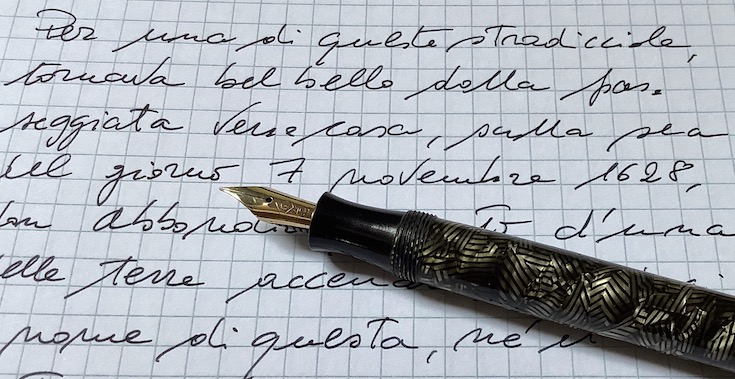 Per una di queste stradicciole,
tornava bel bello dalla pas-
seggiata verso casa, sulla sera
del giorno 7 novembre 1628,
don abbondi d'una
elle terre accen
nome di questa, né